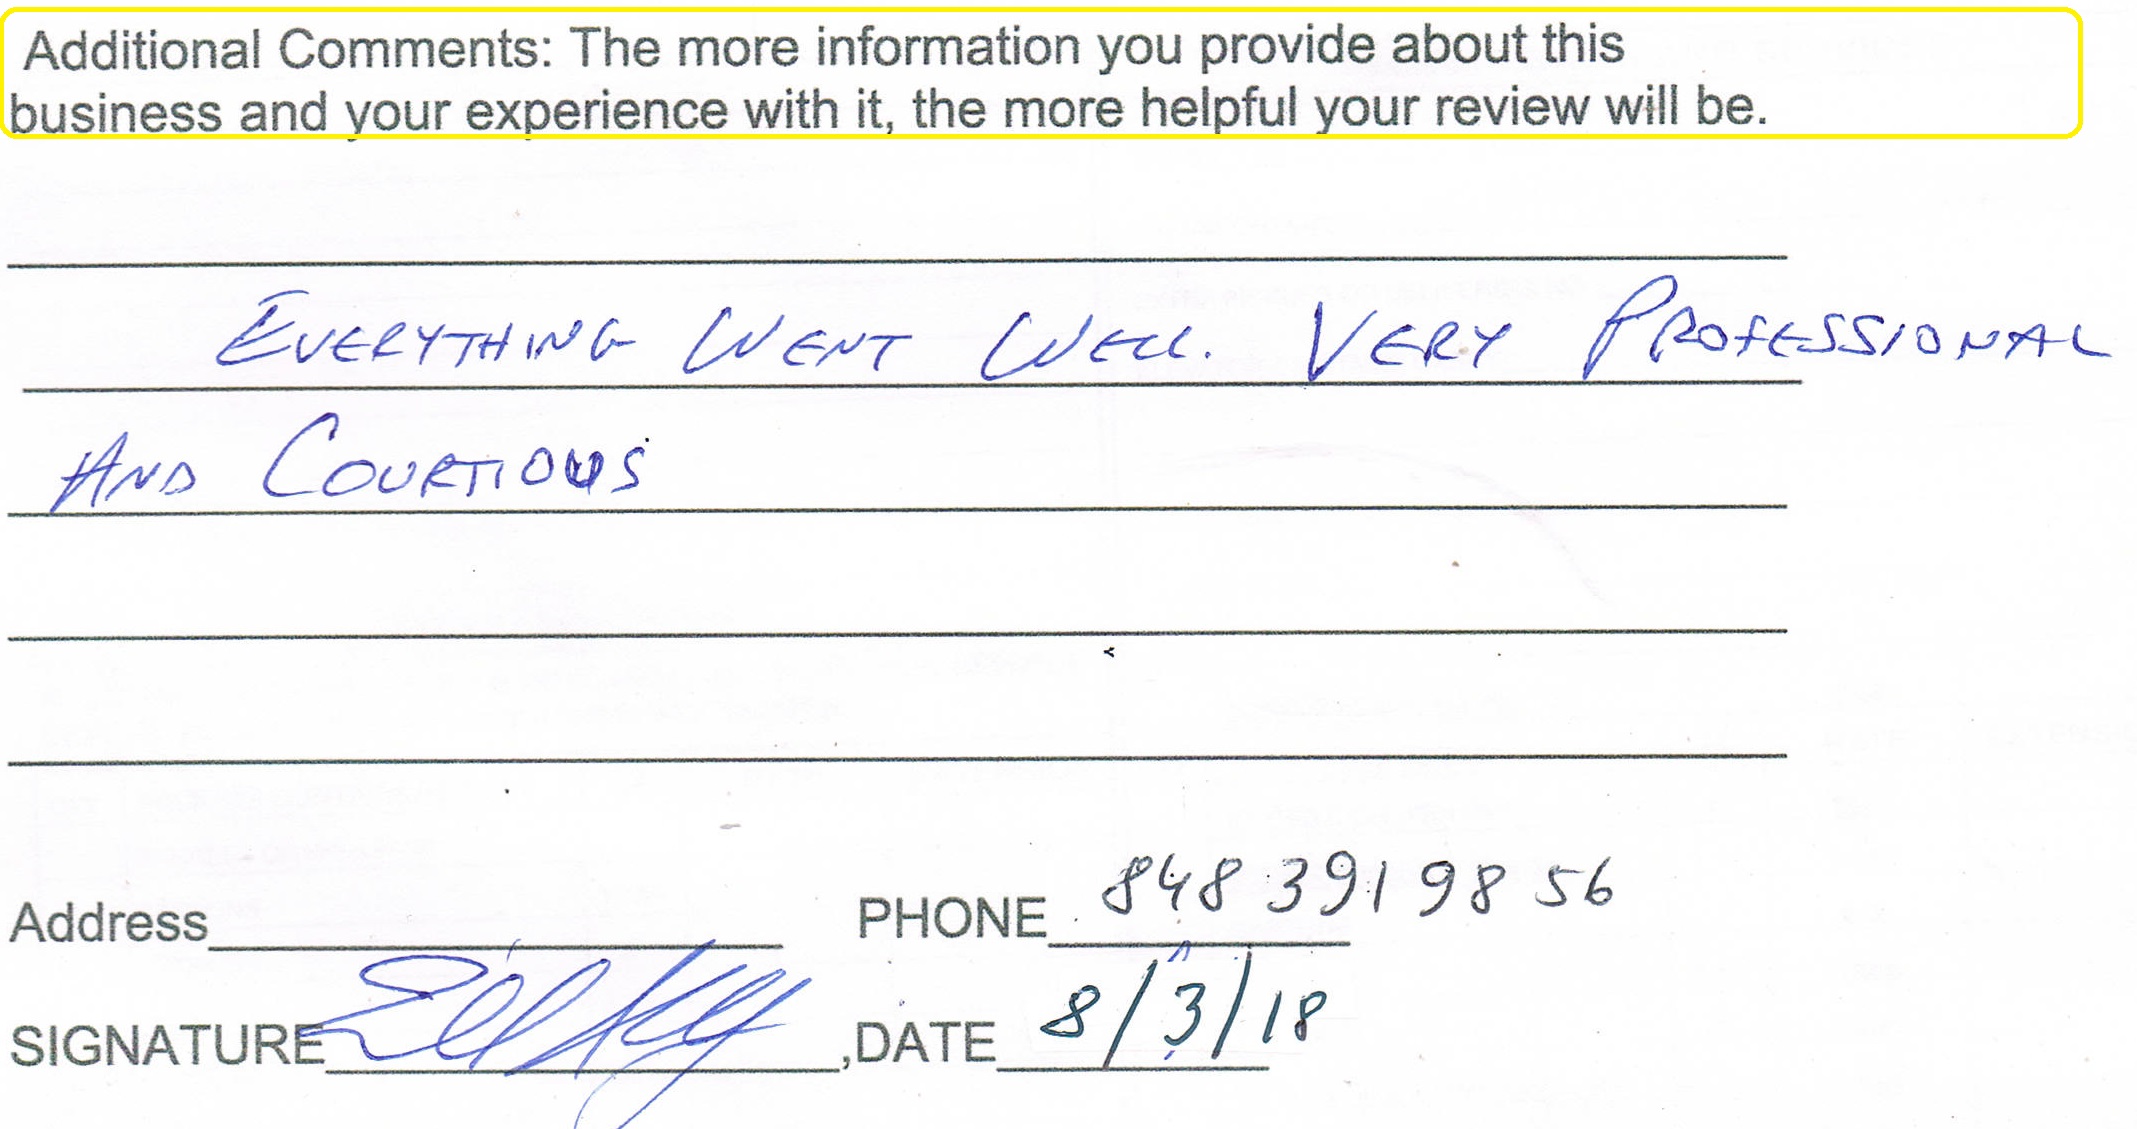 Additional Comments: The more information you provide about this
business and your experience with it, the more helpful your review will be.
EVERYTHING WENT WELL. VERY PROFESSIONAL
AND COURTIOUS
Address PHONE 848 391 9856
SIGNATURE ,DATE 8/3/18